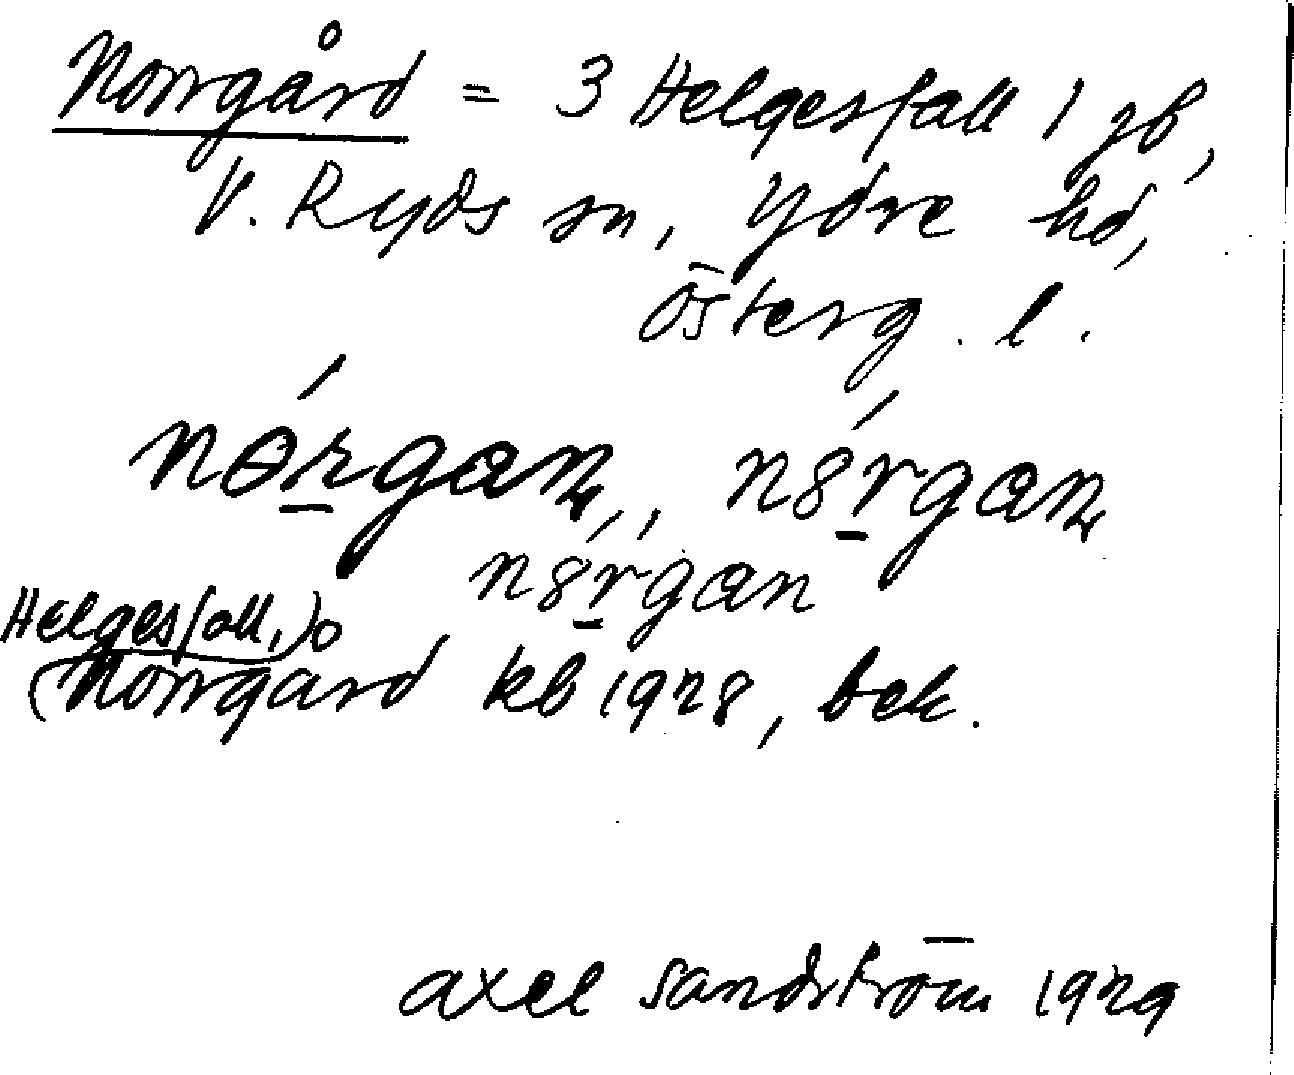 Norrgård = 3 Helgesfall 1 gb,
V. Ryds sn, Ydre hd,
Österg. l.
nɵ́rgaɳ, nȣ́rgaɳ,
nȣ́rgan
(Helgesfall,)
Norrgård kb 1928, bek.
Axel Sandström 1929